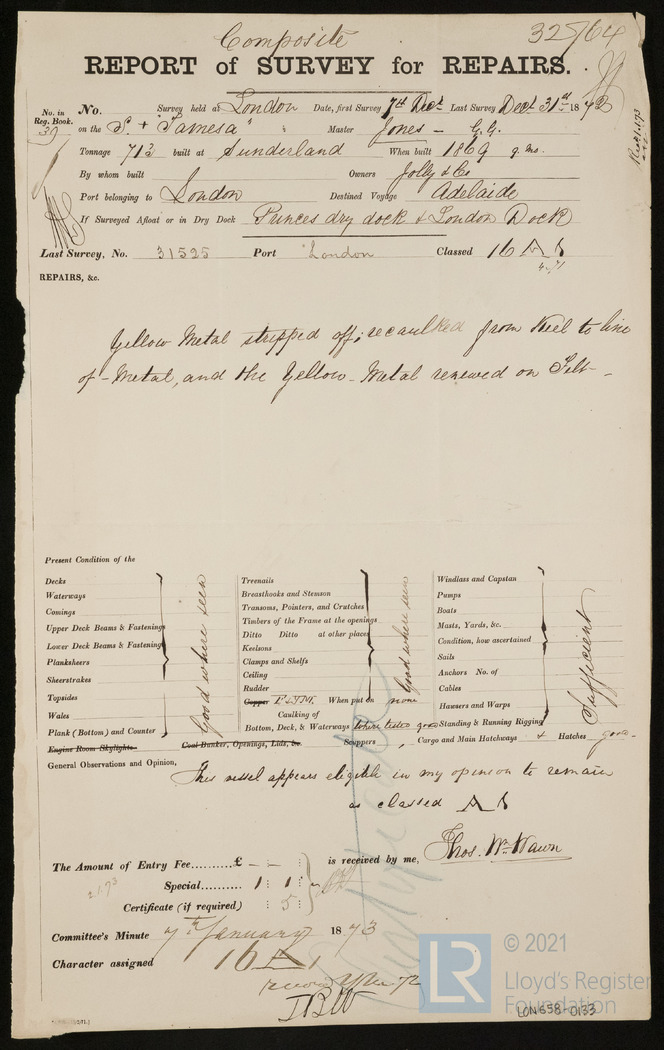 Composite
32764
REPORT of SURVEY for REPAIRS.
No. in Reg. Book.
39
No. Survey held at London Date, first Survey 7th Dec Last Survey Decr 31st 1872
on the S. "Tamesa" Master Jones - G.G.
Tonnage 713 built at Sunderland When built 1869 9 mo.
By whom built Owners Jolly & Co
Port belonging to London Destined Voyage Adelaide
If Surveyed Afloat or in Dry Dock Princes dry dock & London Dock
Last Survey, No. 31525 Port London Classed 16 A 1
REPAIRS, &c.
Yellow Metal stripped off; recaulked from Keel to line
of - Metal, and the Yellow - Metal renewed on Felt -
Present Condition of the
Decks
Waterways
Comings
Upper Deck Beams & Fastenings
Lower Deck Beams & Fastenings
Planksheers
Sheerstrakes
Topsides
Wales
Plank (Bottom) and Counter
Engine Room Skylights
Good where seen
Treenails
Breasthooks and Stemson
Transoms, Pointers, and Crutches
Timbers of the Frame at the openings
Ditto Ditto at other places
Keelsons
Clamps and Shelfs
Ceiling
Rudder
Good where seen
Copper F & YM. When put on now
Caulking of
Bottom, Deck, & Waterways Where tested good
Coal Bunker, Openings, Lids, &c. Scuppers
Windlass and Capstan
Pumps
Boats
Masts, Yards, &c.
Condition, how ascertained
Sails
Anchors No. of
Cables
Hawsers and Warps
Standing & Running Rigging
Sufficient
Cargo and Main Hatchways & Hatches good
General Observations and Opinion,
This vessel appears eligible in my opinion to remain
as classed A 1
Thos. Wm Wawn
The Amount of Entry Fee..........£ - : - : is received by me,
Special.......... 1 : 1 : -
Certificate (if required) : 5 :
2.1.73
Committee's Minute 7th January 1873
Character assigned 16 A 1
© 2021
LR
Lloyd's Register
Foundation
LON658-0133